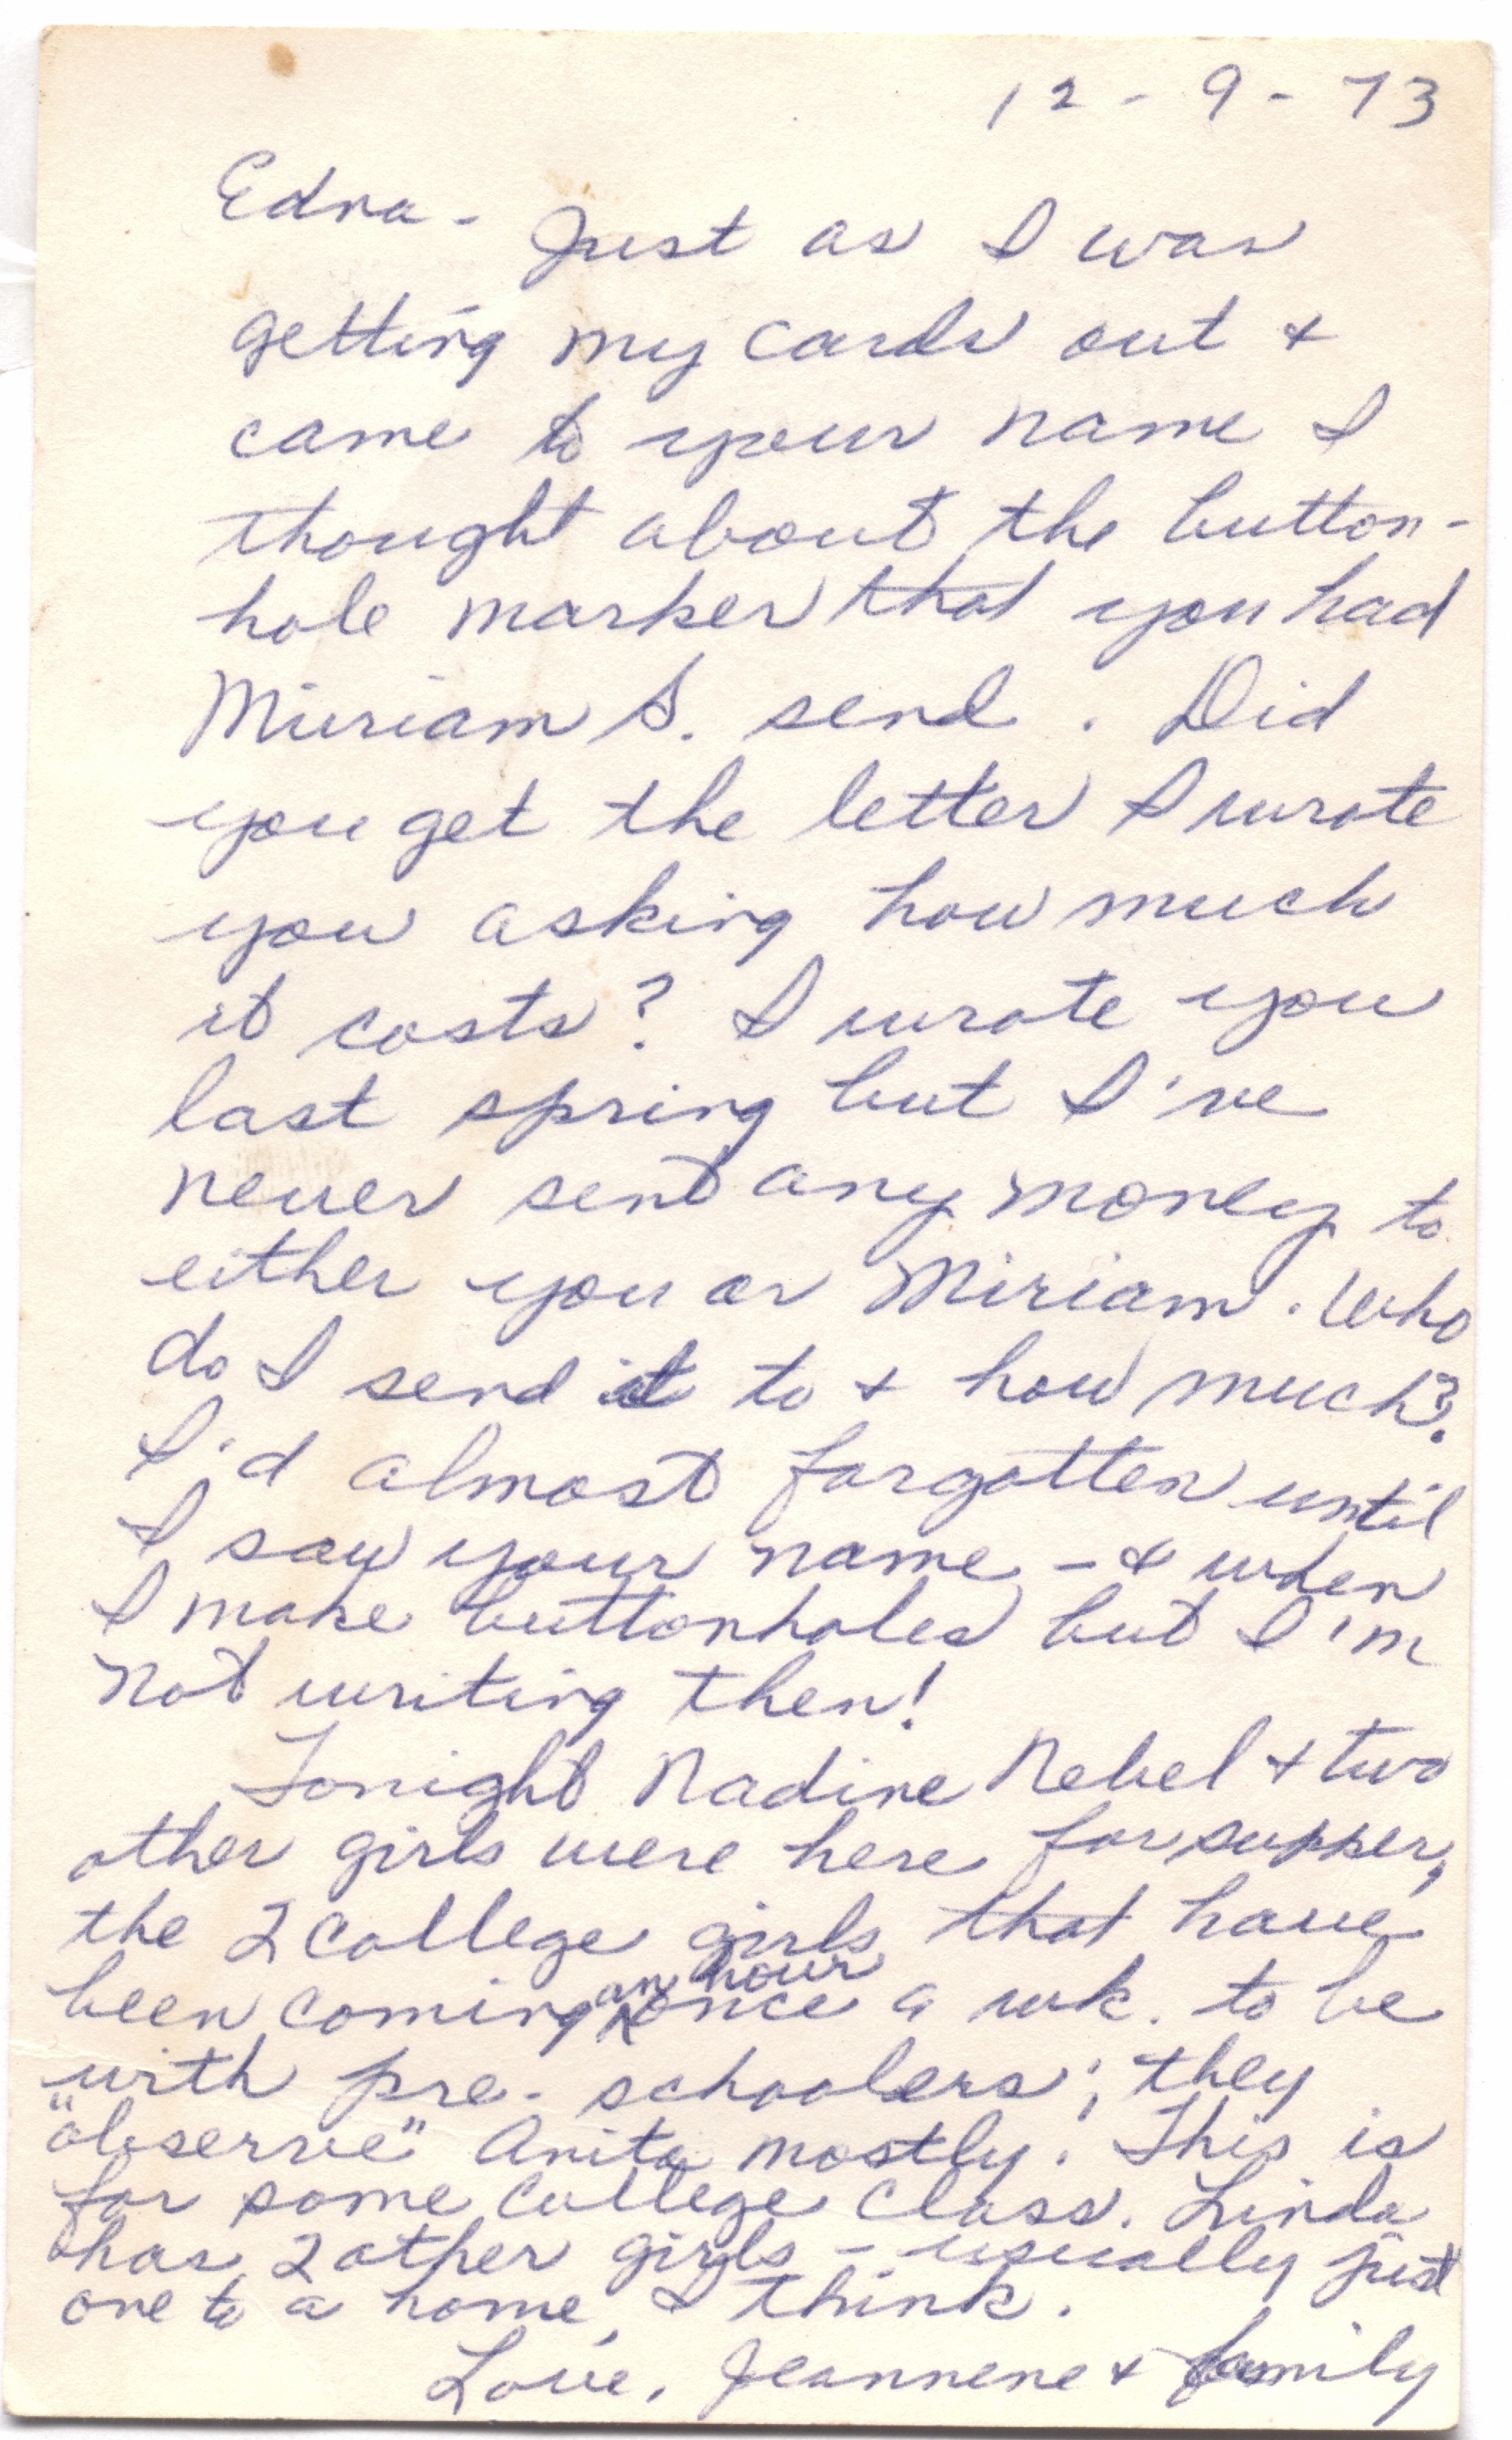 12-9-73
Edna-
Just as I was
getting my cards out +
came to your name I
thought about the button-
hole marker that you had
Miriam S. send. Did
you get the letter I wrote
you asking how much
it costs? I wrote you
last spring but I've
never sent any money to
either you or Miriam. Who
do I send it to + how much?
I'd almost forgotten until
I saw your name - + when
I make buttonholes but I'm
not writing then!
Tonight Nadine Nebel + two
other girls were here for supper,
the 2 college girls that have
been coming an hour once a wk. to be
with pre-schoolers; they
"observe" Anita mostly. This is
for some college class. Linda
has 2 other girls - usually just
one to a home, I think.
Love, Jeannene + family